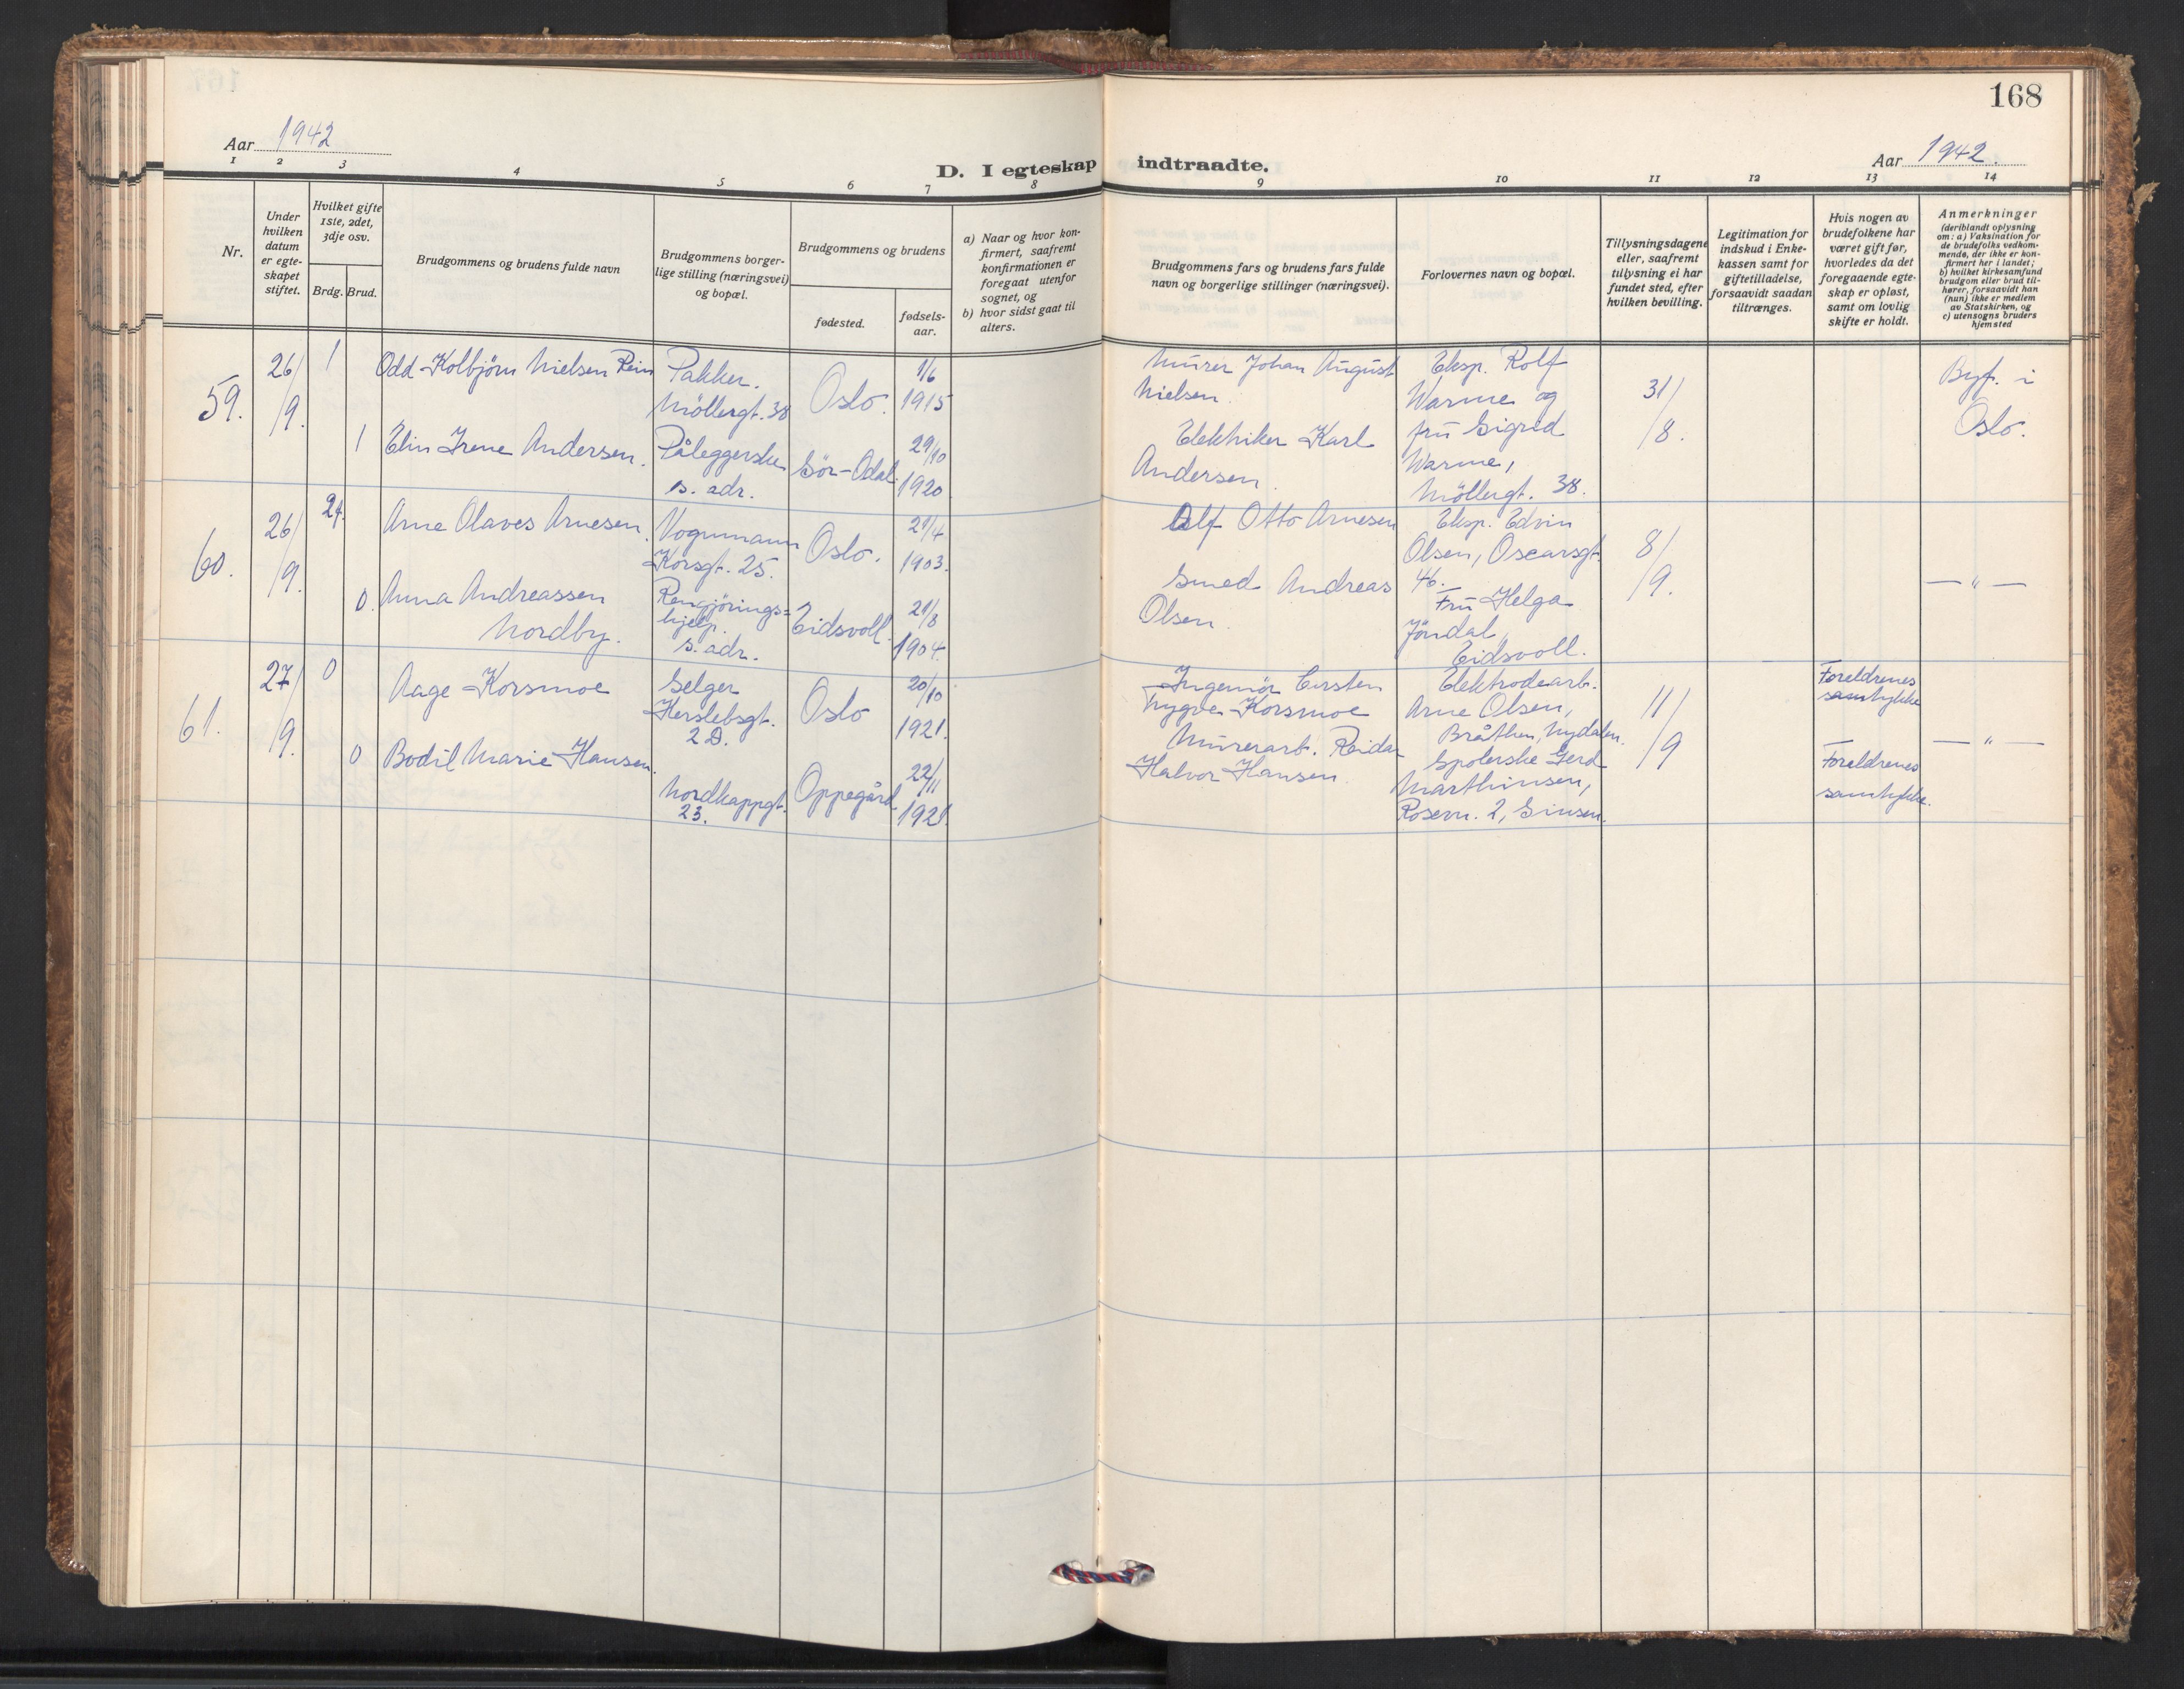 168
Aar 1942
D. I egteskap indtraadte.
Aar 1942.
1 2 3 4 5 6 7 8 9 10 11 12 13 14
Nr.
Under
hvilken
datum
er egte-
skapet
stiftet.
Hvilket gifte
1ste, 2det,
3dje osv.
Brdg. Brud.
Brudgommens og brudens fulde navn
Brudgommens borger-
lige stilling (næringsvei)
og bopæl.
Brudgommens og brudens
fødested.
fødsels-
aar.
a) Naar og hvor kon-
firmert, saafremt
konfirmationen er
foregaat utenfor
sognet, og
b) hvor sidst gaat til
alters.
Brudgommens fars og brudens fars fulde
navn og borgerlige stillinger (næringsvei).
Forlovernes navn og bopæl.
Tillysningsdagene
eller, saafremt
tillysning ei har
fundet sted, efter
hvilken bevilling.
Legitimation for
indskud i Enke-
kassen samt for
giftetilladelse,
forsaavidt saadan
tiltrænges.
Hvis nogen av
brudefolkene har
været gift før,
hvorledes da det
foregaaende egte-
skap er opløst,
samt om lovlig
skifte er holdt.
Anmerkninger
(deriblandt oplysning
om: a) Vaksination for
de brudefolks vedkom-
mende, der ikke er kon-
firmert her i landet;
b) hvilket kirkesamfund
brudgom eller brud til-
hører, forsaavidt han
(hun) ikke er medlem
av Statskirken, og
c) utensogns bruders
hjemsted
59.
26/
9.
1
Odd Kolbjörn Nielsen Rein
Pakker.
Möllergt. 38
Oslo.
1/6
1915
Murer Johan August
Nielsen.
Eksp. Rolf
Warme og
fru Sigrid
Warme,
Möllergt. 38.
31/
/8.
Byf. i
Oslo.
1
Elin Irene Andersen.
Påleggerske
s. adr.
Sör-Odal.
29/10
1920
Elektriker Karl
Andersen.
60.
26/
9.
2f.
Arne Olaves Arnesen.
Vognmann
Korsgt. 25.
Oslo.
21/4
1903.
Alf Otto Arnesen
Eksp. Edvin
Olsen, Oscarsgt.
46.
Fru Helga
Jöndal,
Eidsvoll.
8/
/9.
— " —
0.
Anna Andreassen
Nordby.
Rengjörings=
hjelp.
s. adr.
Eidsvoll.
21/8
1904.
Smed Andreas
Olsen.
61.
27/
9.
0
Aage Korsmoe
Selger
Herslebsgt.
2 D.
Oslo
20/10
1921.
Ingeniör Carsten
Trygve Korsmoe
Elektrodearb.
Arne Olsen,
Bråthen, Nydalen.
Spolerske Gerd
Marthinsen,
Rosenn. 2, Sinsen.
11/
/9
Foreldrenes
samtykke
— " —
0
Bodil Marie Hansen.
Nordkappgt.
23.
Oppegård
22/11
1921.
Murerarb. Reidar
Halvor Hansen.
Foreldrenes
samtykke.